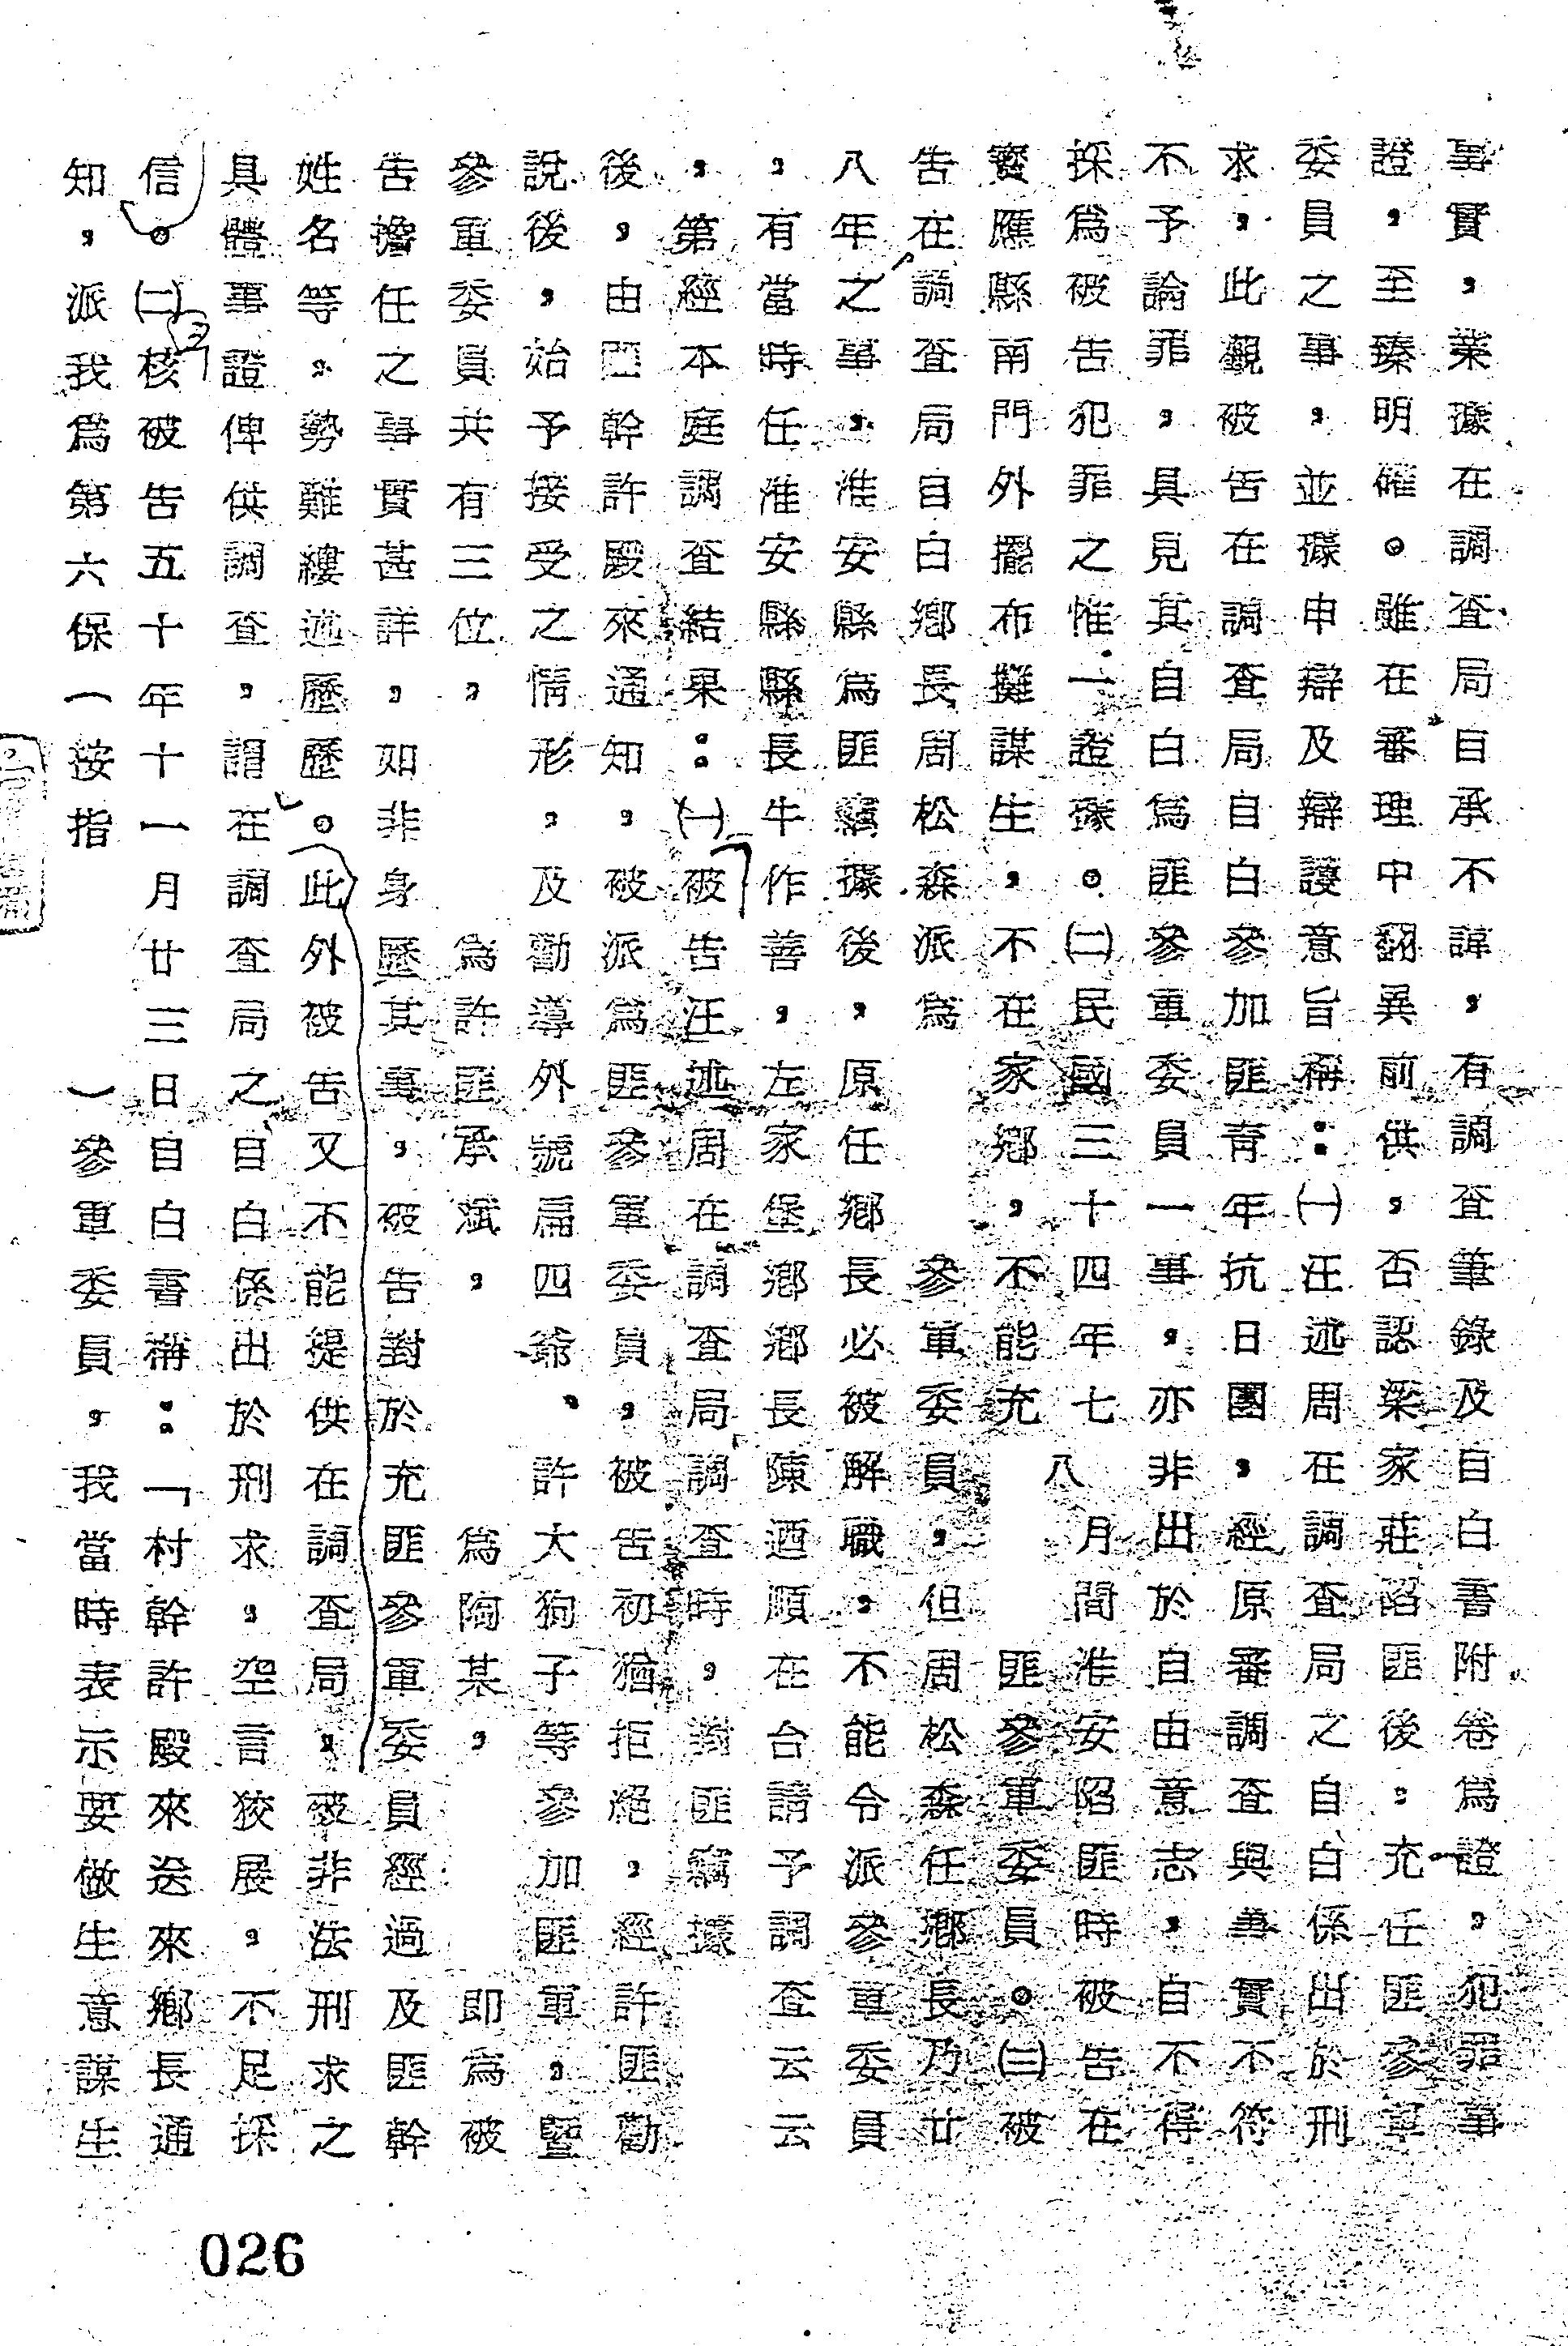 事實，業據在調查局自承不諱，有調查筆錄及自白書附卷為證，犯罪事
證，至臻明確。雖在審理中翻異前供，否認梁家莊陷匪後，充任匪參軍
委員之事，並據申辯及辯護意旨稱：㈠汪述周在調查局之自白係出於刑
求，此觀被告在調查局自白參加匪青年抗日團，經原審調查與事實不符
不予論罪，具見其自白為匪參軍委員一事，亦非出於自由意志，自不得
採為被告犯罪之惟一證據。㈡民國三十四年七八月間淮安陷匪時被告在
寶應縣南門外擺布攤謀生，不在家鄉，不能充匪參軍委員。㈢被
告在調查局自白鄉長周松森派為參軍委員，但周松森任鄉長乃廿
八年之事，淮安縣為匪竊據後，原任鄉長必被解職，不能令派參軍委員
，有當時任淮安縣縣長牛作善，左家堡鄉鄉長陳迺順在台請予調查云云
，第經本庭調查結果：㈠被告汪述周在調查局調查時，對匪竊據
後，由匪幹許殿來通知，被派為匪參軍委員，被告初猶拒絕，經許匪勸
說後，始予接受之情形，及勸導外號扁四爺、許大狗子等參加匪軍，暨
參軍委員共有三位，為許匪承斌，為陶某，即為被
告擔任之事實甚詳，如非身歷其事，被告對於充匪參軍委員經過及匪幹
姓名等，勢難縷述歷歷。此外被告又不能提供在調查局，被非法刑求之
具體事證俾供調查，謂在調查局之自白係出於刑求，空言狡展，不足採
信。㈡核被告五十年十一月廿三日自白書稱：「村幹許殿來送來鄉長通
知，派我為第六保（按指）參軍委員，我當時表示要做生意謀生
026